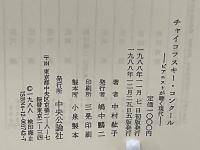 チャイコフスキー・コンクール
―ピアニストが聴く現代―
定価一〇〇〇円
一九八八年一一月七日初版発行
一九八八年一二月二五日五版発行
著者 中村紘子
発行者 嶋中鵬二
印刷所 三晃印刷
製本所 小泉製本
発行所 中央公論社
東京都中央区京橋二-八-七
振替東京二-三四
©一九八八 検印廃止